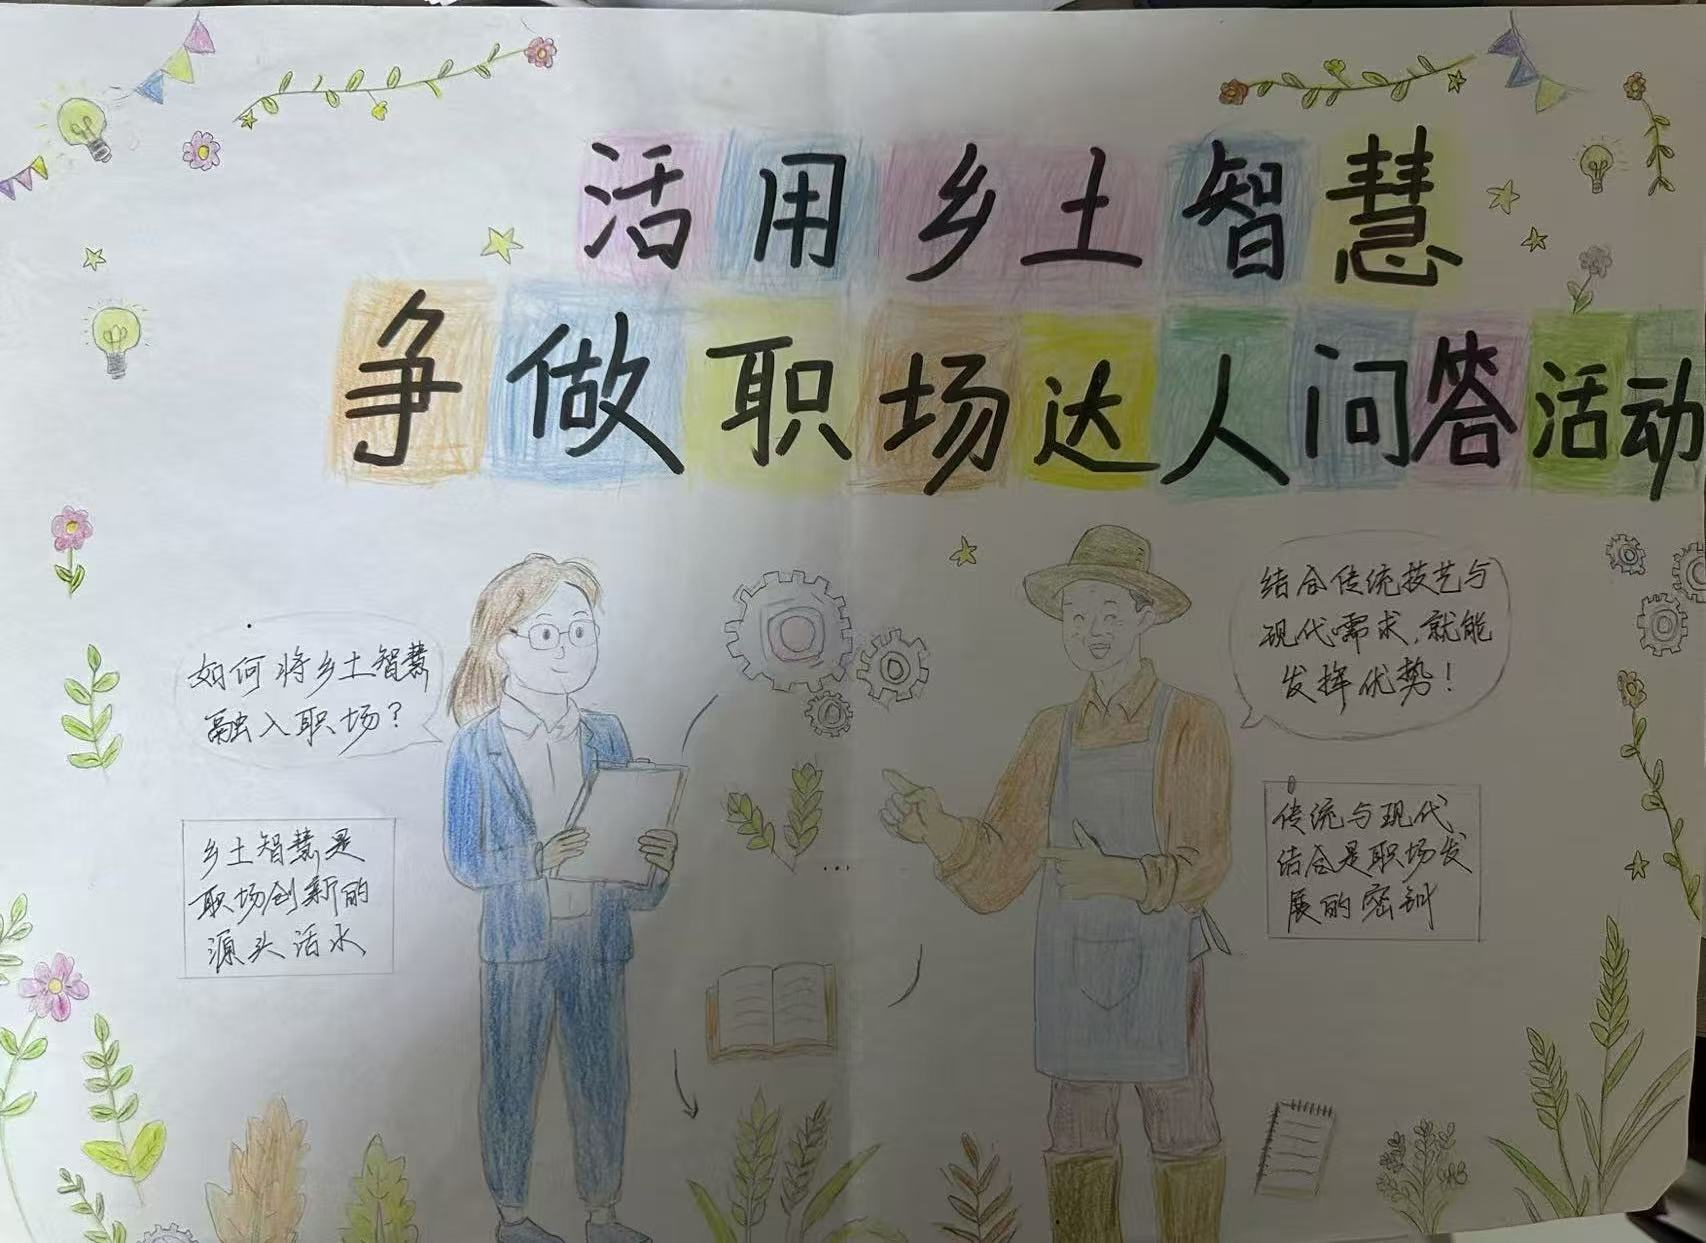 活用乡土智慧
争做职场达人问答活动
如何将乡土智慧
融入职场？
结合传统技艺与
现代需求，就能
发挥优势！
乡土智慧是
职场创新的
源头活水
传统与现代
结合是职场发
展的密钥